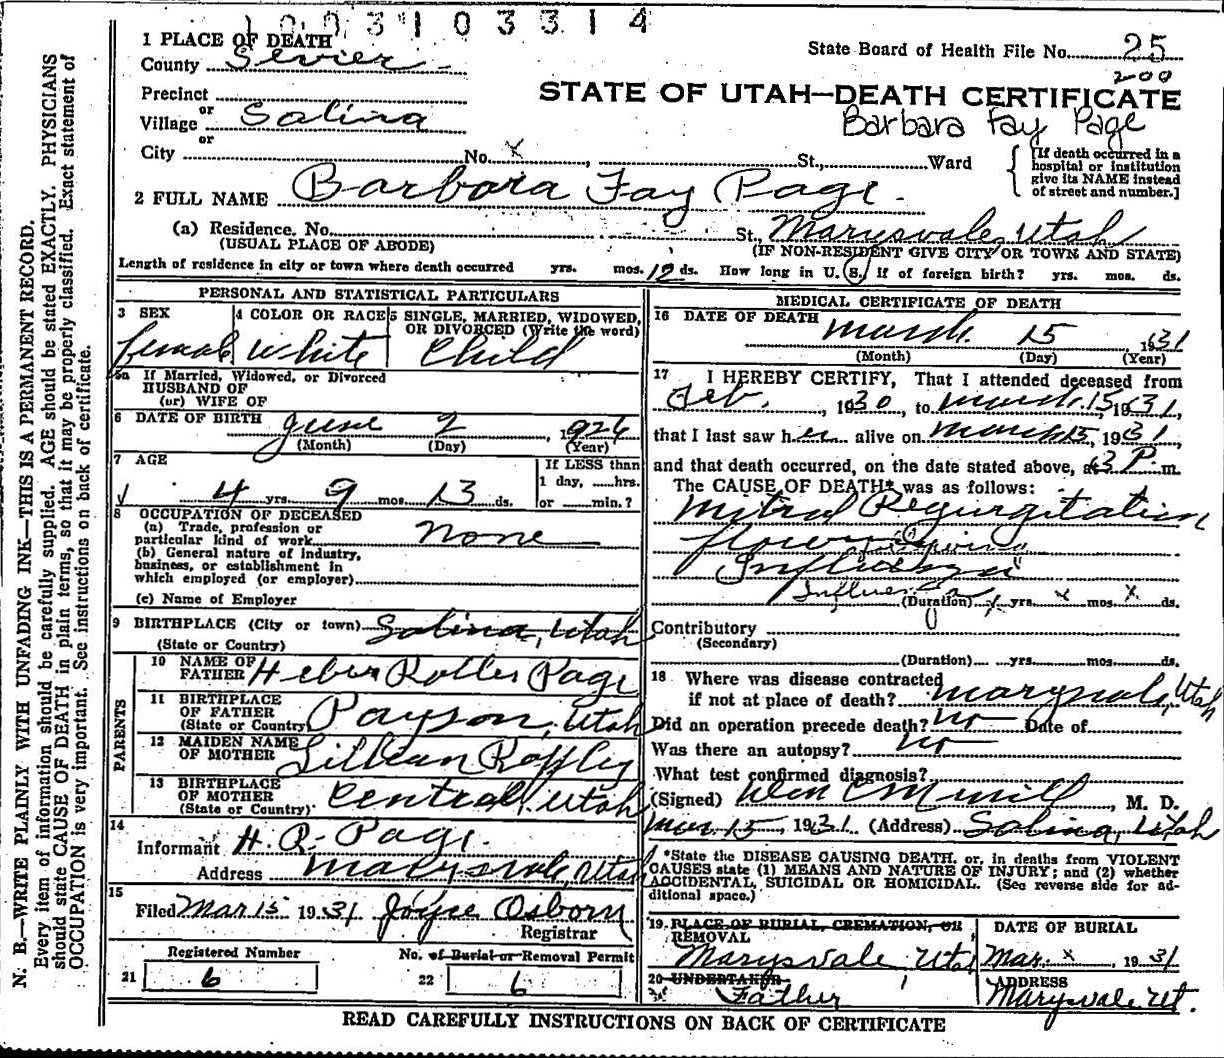 1003103314
1 PLACE OF DEATH
State Board of Health File No. 25
County Sevier
200
Precinct
STATE OF UTAH—DEATH CERTIFICATE
or
Village Salina
Barbara Fay Page
or
City No. x , St., Ward
[If death occurred in a
hospital or institution
give its NAME instead
of street and number.]
2 FULL NAME Barbara Fay Page.
(a) Residence. No. St., Marysvale, Utah
(USUAL PLACE OF ABODE) (IF NON-RESIDENT GIVE CITY OR TOWN AND STATE)
Length of residence in city or town where death occurred yrs. mos. 12 ds. How long in U. S., if of foreign birth? yrs. mos. ds.
PERSONAL AND STATISTICAL PARTICULARS
3 SEX 4 COLOR OR RACE 5 SINGLE, MARRIED, WIDOWED,
OR DIVORCED (Write the word)
female White Child
5a If Married, Widowed, or Divorced
HUSBAND OF
(or) WIFE OF
6 DATE OF BIRTH June 2, 1926
(Month) (Day) (Year)
7 AGE If LESS than
1 day, hrs.
4 yrs. 9 mos. 13 ds. or min.?
8 OCCUPATION OF DECEASED
(a) Trade, profession or
particular kind of work None
(b) General nature of industry,
business, or establishment in
which employed (or employer)
(c) Name of Employer
9 BIRTHPLACE (City or town) Salina, Utah
(State or Country)
PARENTS
10 NAME OF
FATHER Heber Page
11 BIRTHPLACE
OF FATHER
(State or Country) Payson, Utah
12 MAIDEN NAME
OF MOTHER Lillian
13 BIRTHPLACE
OF MOTHER
(State or Country) Central, Utah
14
Informant H. R. Page.
Address Marysvale, Utah
15
Filed Mar 15 1931 Joyce Osborn
Registrar
Registered Number No. of Burial or Removal Permit
21 6 22 6
MEDICAL CERTIFICATE OF DEATH
16 DATE OF DEATH March 15 1931
(Month) (Day) (Year)
17 I HEREBY CERTIFY, That I attended deceased from
Feb. , 1930, to March 15, 1931,
that I last saw her alive on March 15, 1931,
and that death occurred, on the date stated above, at 3 P. m.
The CAUSE OF DEATH* was as follows:
Mitral Regurgitation
following
Influenza
Influenza
(Duration) yrs. x mos. x ds.
Contributory
(Secondary)
(Duration) yrs. mos. ds.
18 Where was disease contracted
if not at place of death? Marysvale, Utah
Did an operation precede death? No Date of
Was there an autopsy? No
What test confirmed diagnosis?
(Signed) , M. D.
Mar. 15, 1931 (Address) Salina, Utah
*State the DISEASE CAUSING DEATH, or, in deaths from VIOLENT
CAUSES state (1) MEANS AND NATURE OF INJURY; and (2) whether
ACCIDENTAL, SUICIDAL OR HOMICIDAL. (See reverse side for ad-
ditional space.)
19 PLACE OF BURIAL, CREMATION, OR
REMOVAL
DATE OF BURIAL
Marysvale, Utah Mar. x 1931
20 UNDERTAKER ADDRESS
Father Marysvale Ut.
READ CAREFULLY INSTRUCTIONS ON BACK OF CERTIFICATE
N. B.—WRITE PLAINLY WITH UNFADING INK—THIS IS A PERMANENT RECORD.
Every item of information should be carefully supplied. AGE should be stated EXACTLY. PHYSICIANS
should state CAUSE OF DEATH in plain terms, so that it may be properly classified. Exact statement of
OCCUPATION is very important. See instructions on back of certificate.